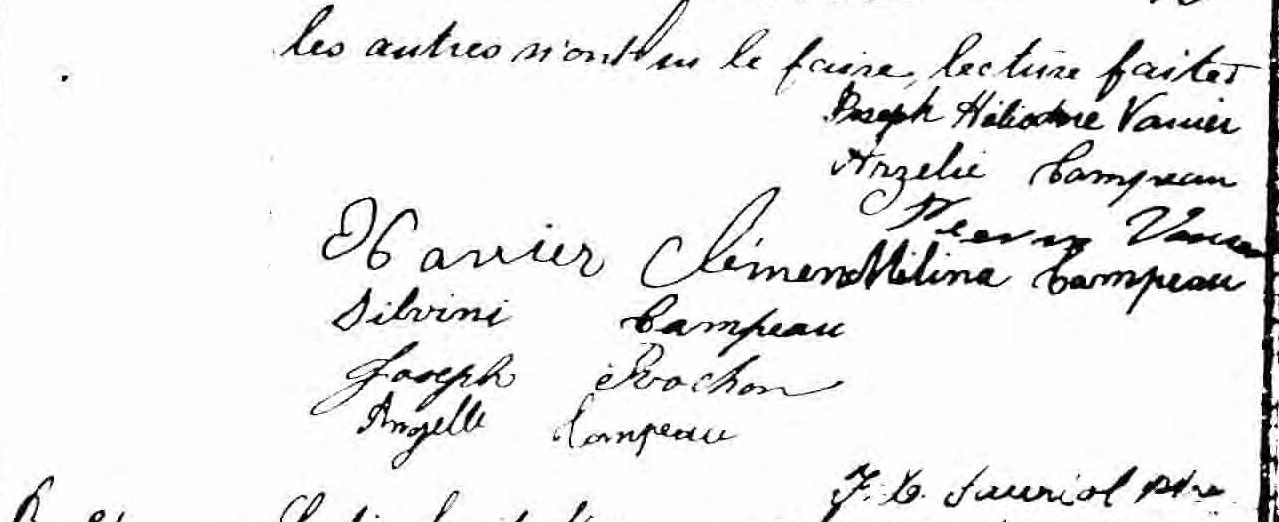 les autres n'ont su le faire, lecture faite
Joseph Héliodore Vanier
Arzelie Campeau
Vanier
Xavier Clément Mélina Campeau
Silvini Campeau
Joseph Rochon
Angelle Campeau
J. E. Sauriol ptre